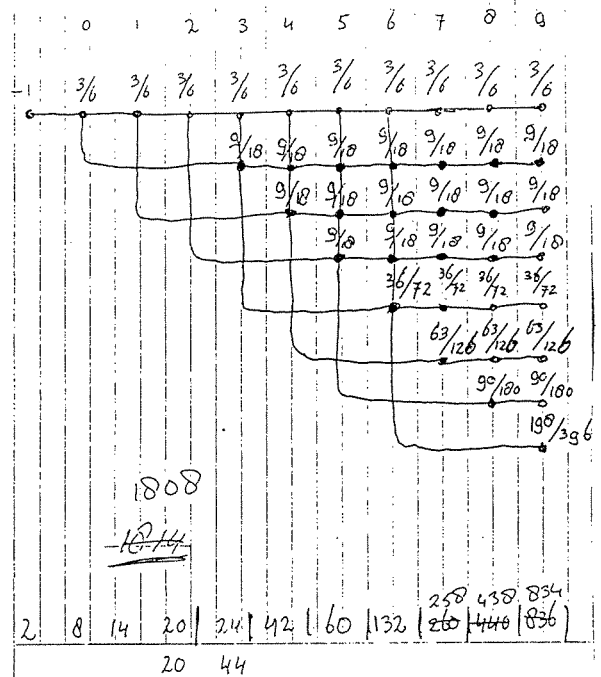 0 1 2 3 4 5 6 7 8 9
-1 3/6 3/6 3/6 3/6 3/6 3/6 3/6 3/6 3/6 3/6
9/18 9/18 9/18 9/18 9/18 9/18 9/18
9/18 9/18 9/18 9/18 9/18 9/18
9/18 9/18 9/18 9/18 9/18
36/72 36/72 36/72 36/72
63/126 63/126 63/126
90/180 90/180
198/396
1808
258 438 834
2 8 14 20 24 42 60 132 260 440 836
20 44